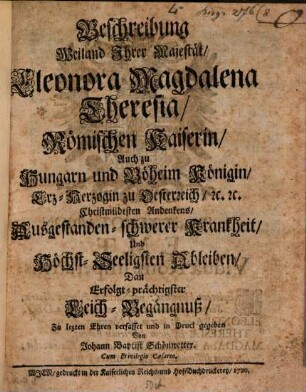 Beschreibung
Weiland Ihrer Majestät/
Eleonora Magdalena
Theresia/
Römischen Kaiserin/
Auch zu
Hungarn und Böheim Königin/
Ertz-Hertzogin zu Oesterreich/ ꝛc. ꝛc.
Christmildesten Andenkens/
Ausgestanden-schwerer Krankheit/
Und
Höchst-Seeligsten Ableiben/
Dan
Erfolgt-prächtigster
Leich-Begängnuß/
Zu letzten Ehren verfasset und in Druck gegeben
Von
Johann Baptist Schönwetter.
Cum Privilegio Cæsareo.
WIEN/ gedruckt in der Kaiserlichen Reichs- und Hof-Buchdruckerey/ 1720.